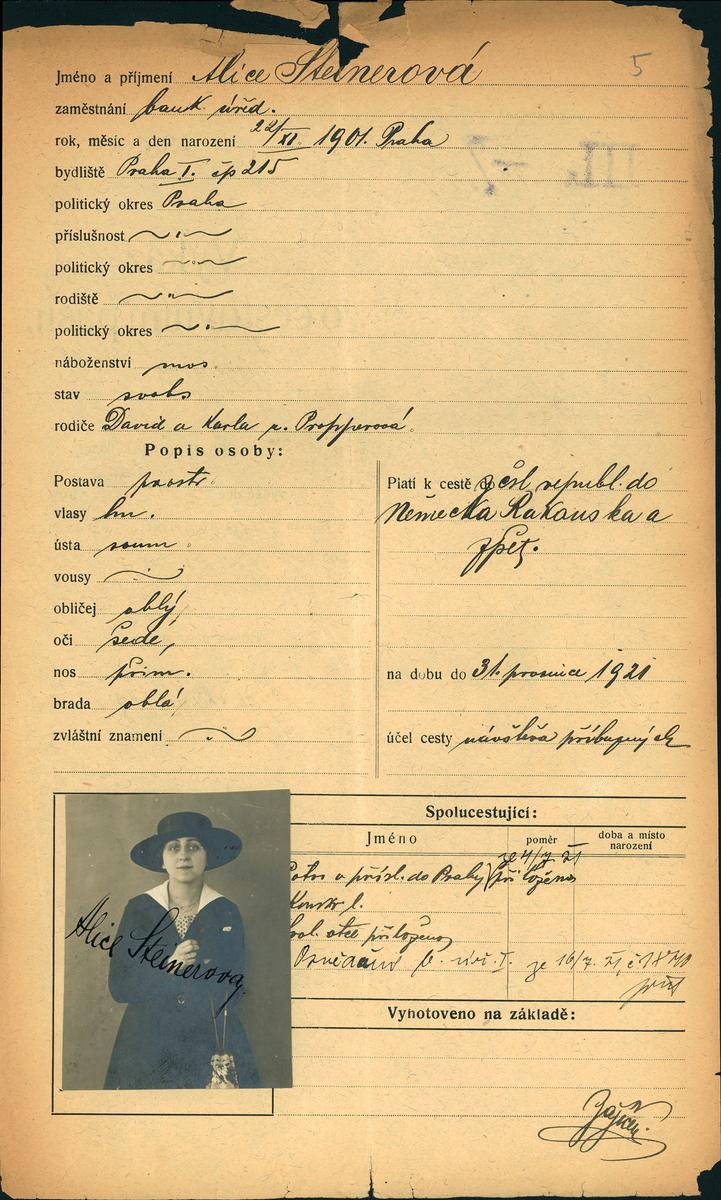 5
Jméno a příjmení Alice Steinerová
zaměstnání bank. úřed.
rok, měsíc a den narození 22/XI. 1901. Praha
bydliště Praha I. čp 215
politický okres Praha
příslušnost
politický okres
rodiště
politický okres
náboženství mos.
stav svob.
rodiče David a Karla r. Propperová
Popis osoby:
Postava prostř.
vlasy hn.
ústa soum.
vousy
obličej oblý
oči šedé,
nos přim.
brada oblá
zvláštní znamení
Platí k cestě do z čsl. republ. do
Německa Rakouska a
zpět.
na dobu do 31. prosince 1921
účel cesty návštěva příbuzných
Spolucestující:
Jméno
poměr
doba a místo narození
ze 4/7 21
Potvr. o přísl. do Prahy přiloženo
svol. otce přiloženo
ze 16/7. 21, č
Vyhotoveno na základě:
Alice Steinerová